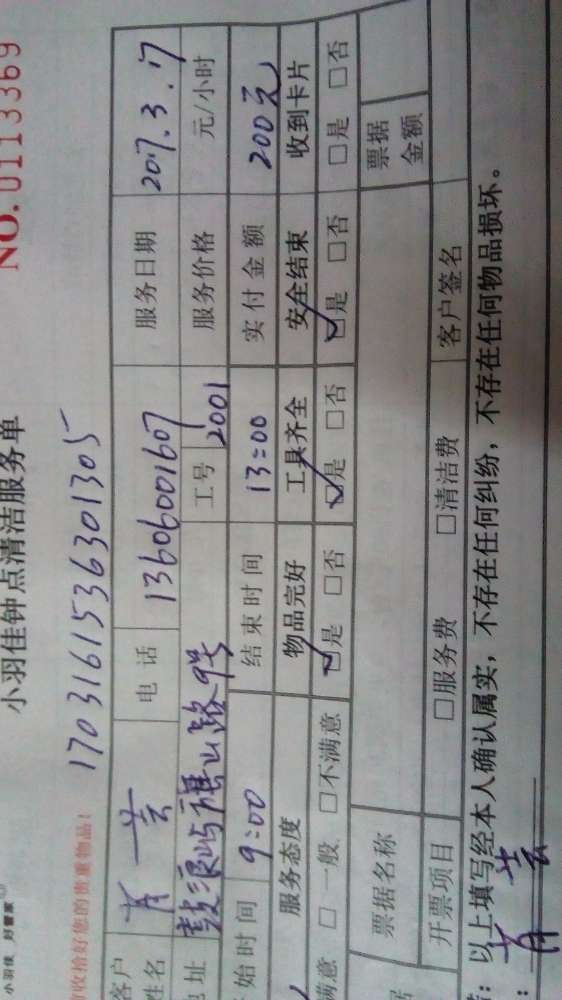 小羽佳 好管家
小羽佳钟点清洁服务单
NO.0113369
收拾好您的贵重物品!
1703161536301305
客户姓名 肖芸 电话 13606001607 服务日期 2017.3.17
地址 鼓浪屿旗山路9号 工号 2001 服务价格 元/小时
始时间 9:00 结束时间 13:00 实付金额 200元
服务态度 物品完好 工具齐全 安全结束 收到卡片
满意 □一般 □不满意 ☑是 □否 ☑是 □否 ☑是 □否 □是 □否
票据名称 票据金额
开票项目 □服务费 □清洁费 客户签名
以上填写经本人确认属实,不存在任何纠纷,不存在任何物品损坏。
肖芸